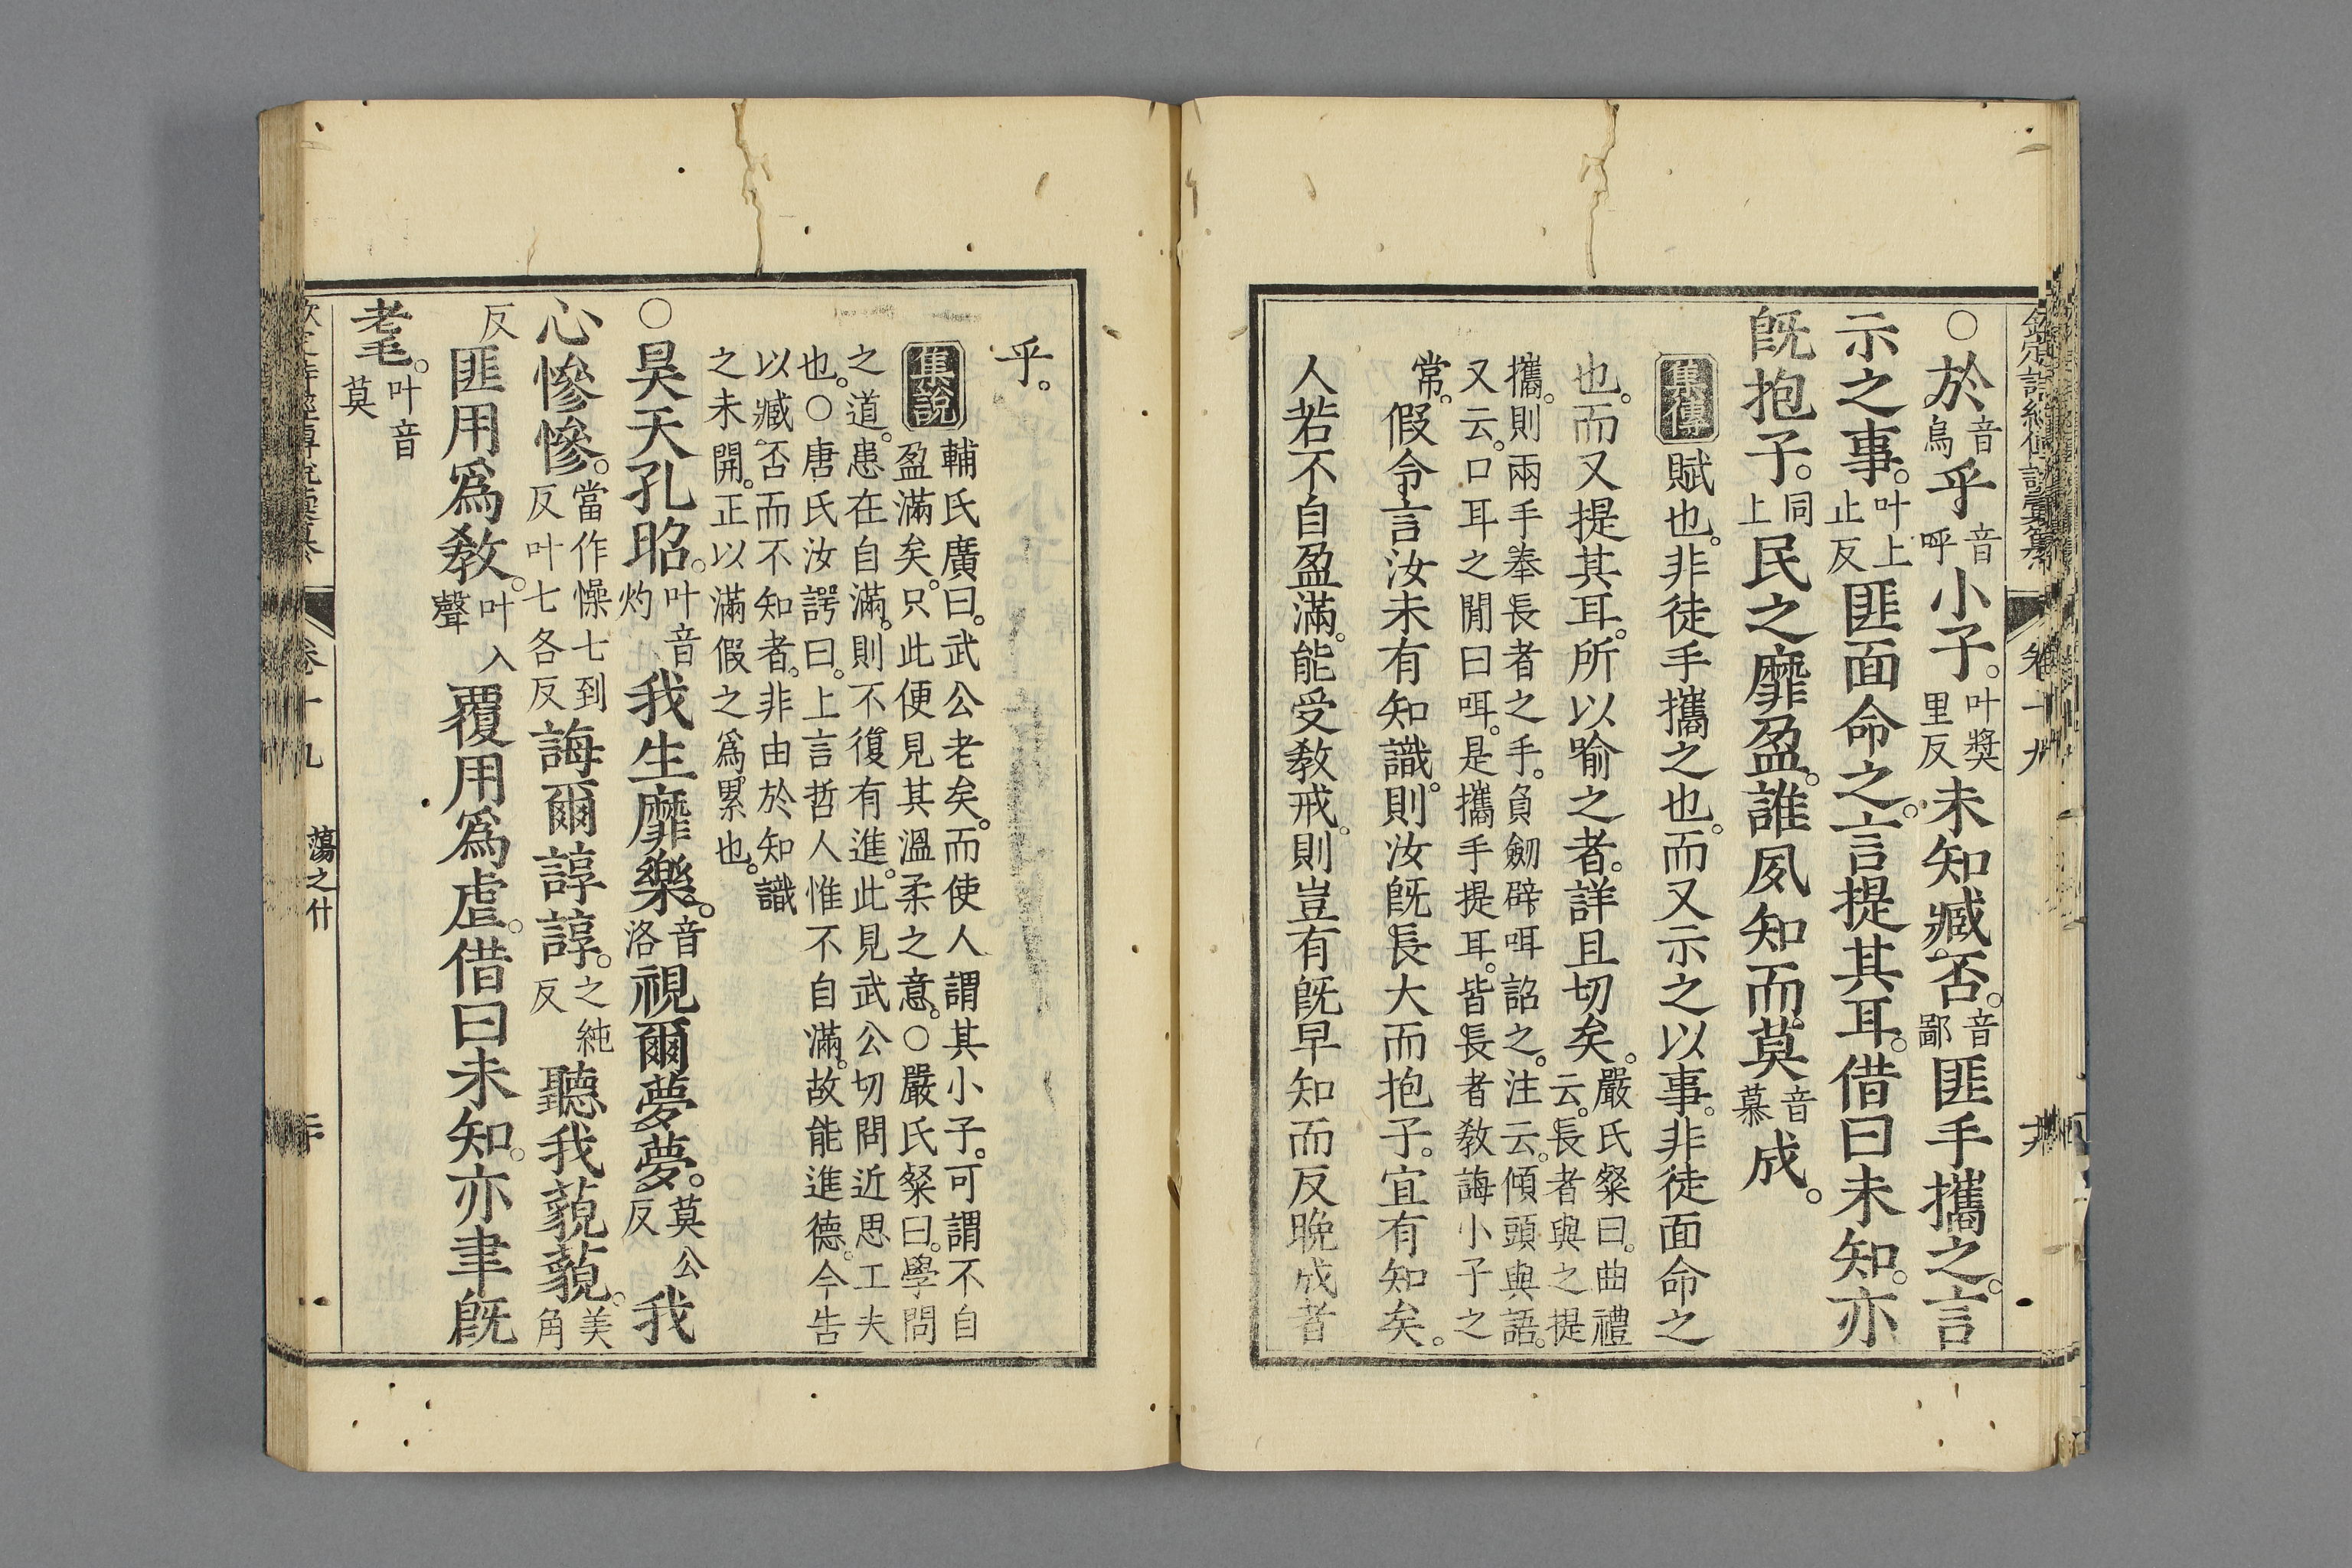 欽定詩經傳說彙纂 卷十九
○於音烏乎音呼小子。叶獎里反未知臧否。音鄙匪手攜之。言
示之事。叶上止反匪面命之。言提其耳。借曰未知。亦
旣抱子。同上民之靡盈。誰夙知而莫音慕成。
集傳 賦也。非徒手攜之也。而又示之以事。非徒面命之
也。而又提其耳。所以喻之者。詳且切矣。嚴氏粲曰。曲禮云。長者與之提
攜。則兩手奉長者之手。負劒辟咡詔之。注云。傾頭與語。
又云。口耳之閒曰咡。是攜手提耳。皆長者敎誨小子之
常。假令言汝未有知識。則汝旣長大而抱子。宜有知矣。
人若不自盈滿。能受敎戒。則豈有旣早知而反晚成者
乎。
集說 輔氏廣曰。武公老矣。而使人謂其小子。可謂不自
盈滿矣。只此便見其溫柔之意。○嚴氏粲曰。學問
之道。患在自滿。則不復有進。此見武公切問近思工夫
也。○唐氏汝諤曰。上言哲人惟不自滿。故能進德。今告
以臧否而不知者。非由於知識
之未開。正以滿假之爲累也。
○昊天孔昭。叶音灼我生靡樂。音洛視爾夢夢。莫公反我
心慘慘。當作懆七到反叶七各反誨爾諄諄。之純反聽我藐藐。美角
反匪用爲敎。叶入聲覆用爲虐。借曰未知。亦聿旣
耄。叶音莫
卷十九 蕩之什